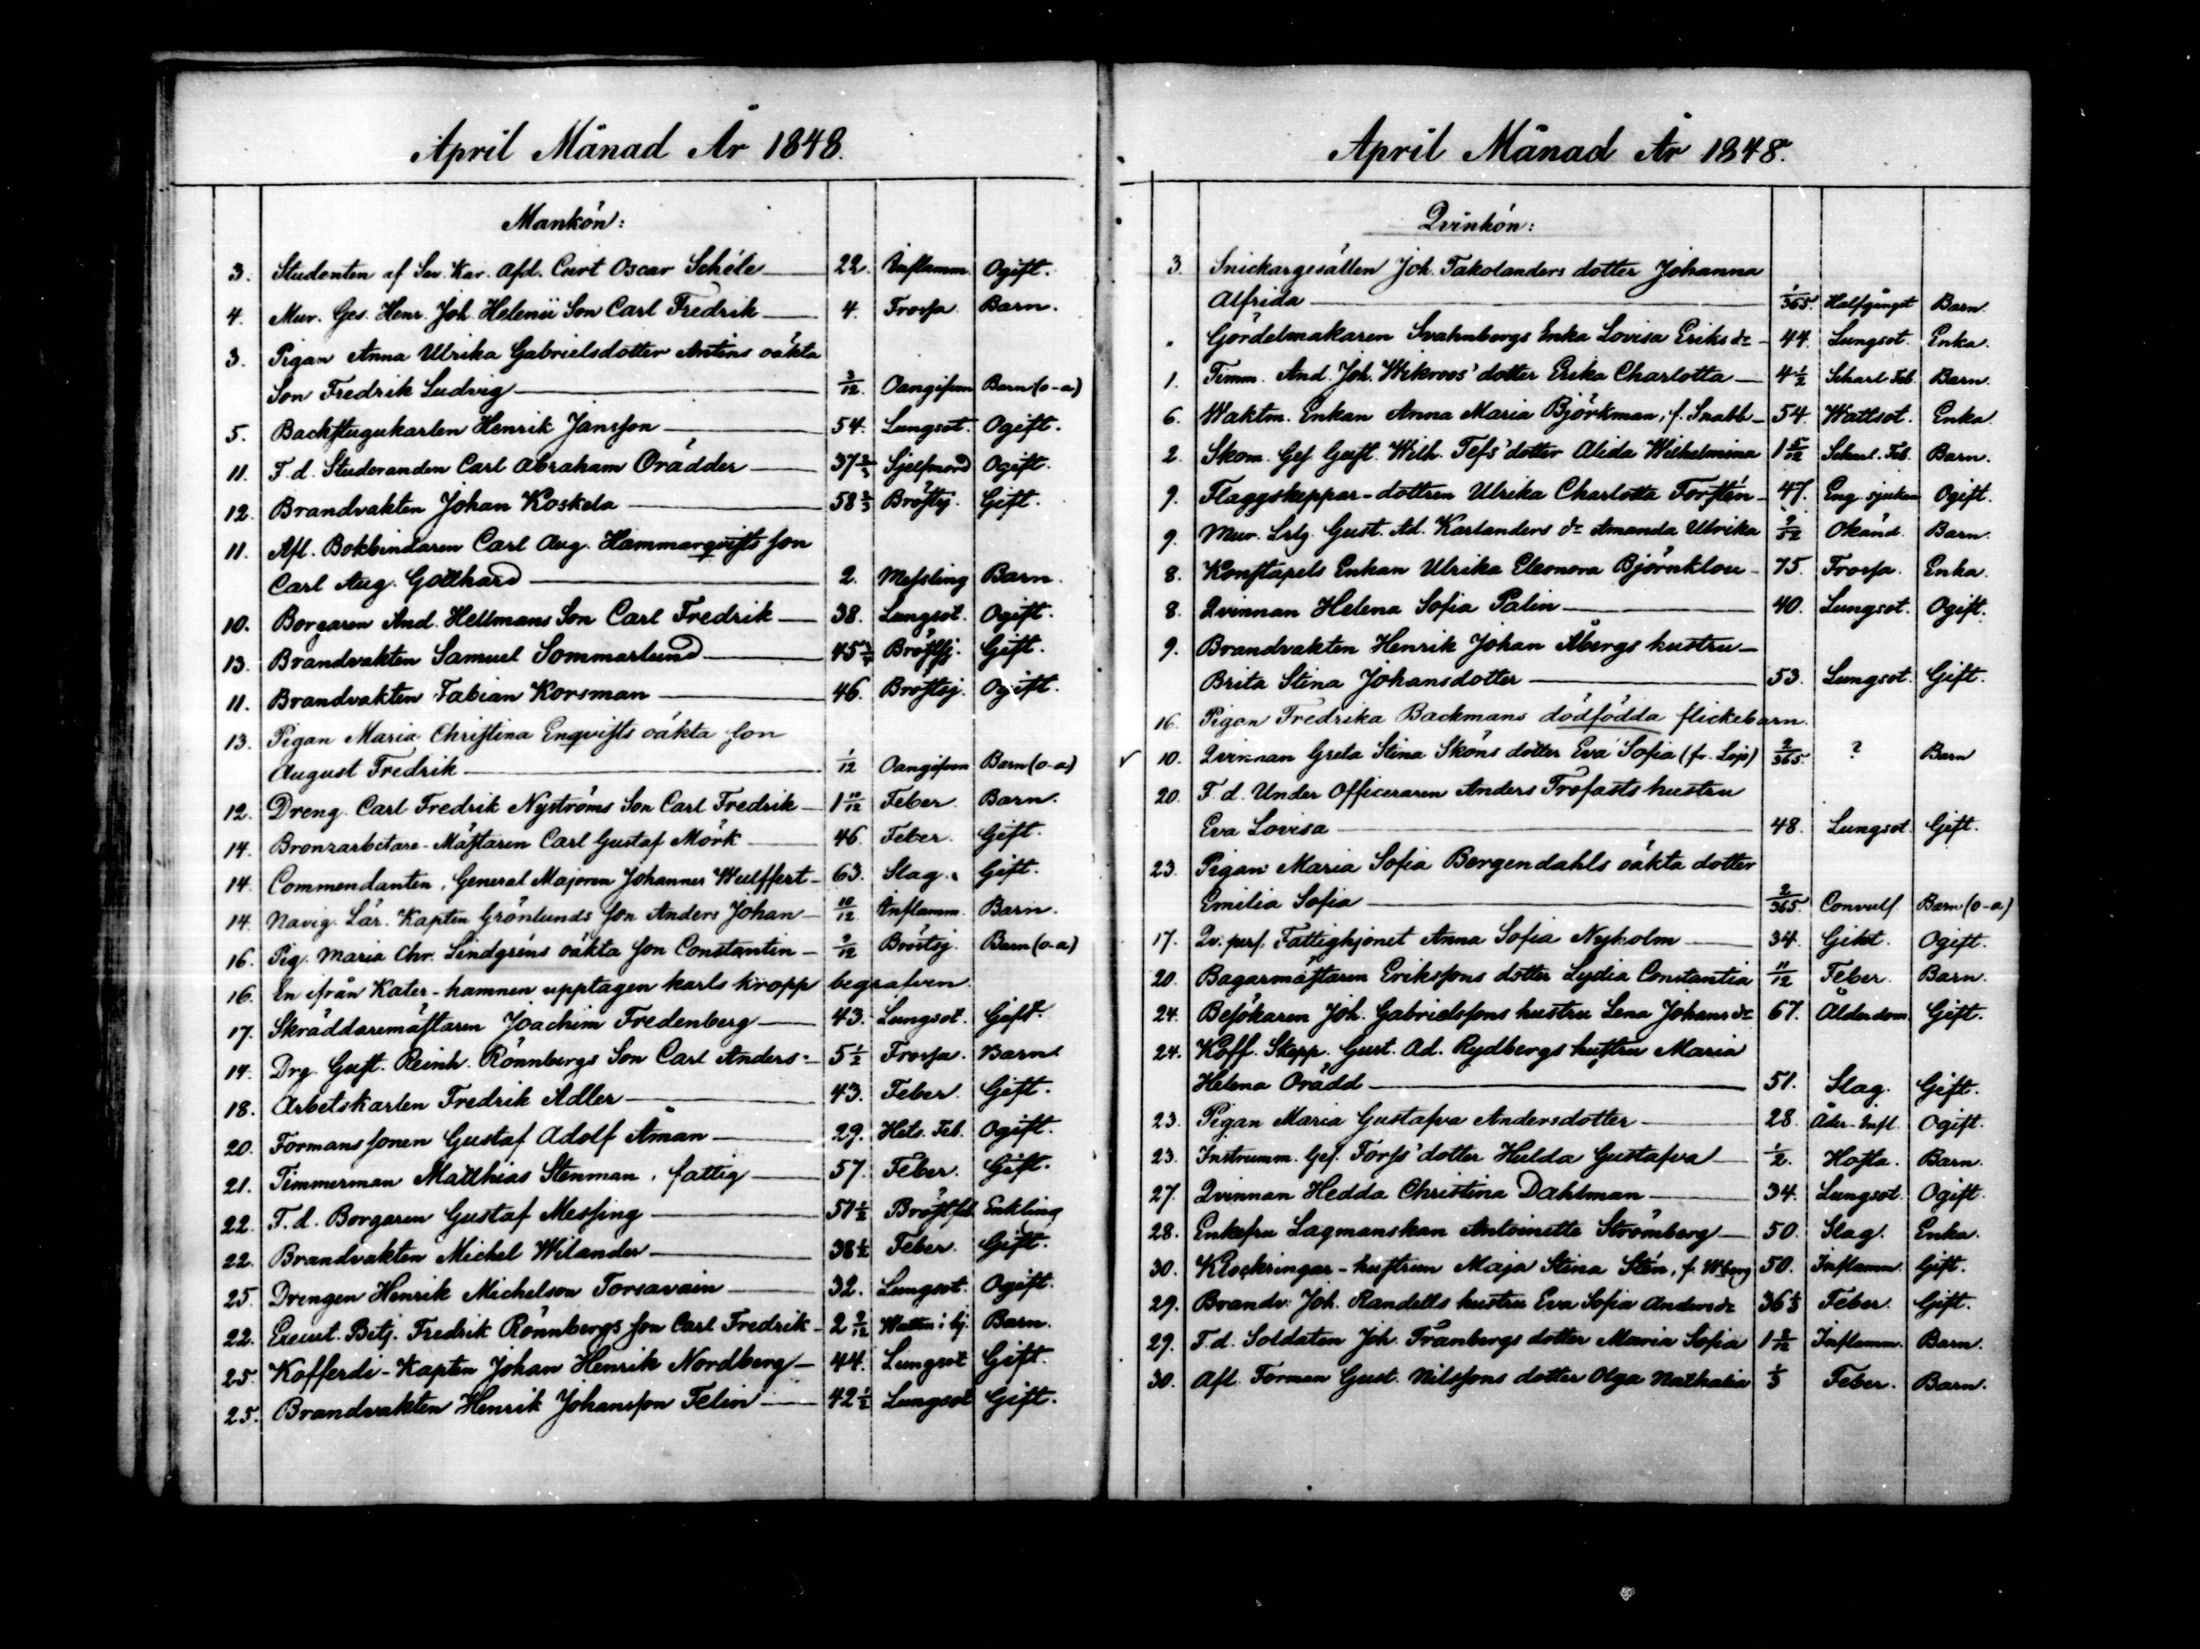 April Månad År 1848.
Mankön:
3. Studenten af Sav. Kar. Afd. Curt Oscar Schéle — 22. Inflamm. Ogift.
4. Mur. Ges. Henr. Joh. Helenii Son Carl Fredrik — 4. Frossa. Barn.
3. Pigan Anna Ulrika Gabrielsdotter Antins oäkta
Son Fredrik Ludvig — 3/12. Oangifven Barn (o-a)
5. Backstugukarlen Henrik Jansson — 54. Lungsot. Ogift.
11. F. d. Studeranden Carl Abraham Orädder — 37 2/3 Sjelfmord Ogift.
12. Brandvakten Johan Koskela — 58 2/3 Bröstsj. Gift.
11. Afl. Bokbindaren Carl Aug. Hammarqvists son
Carl Aug. Gotthard — 2. Messling Barn.
10. Borgaren And. Hellmans Son Carl Fredrik — 38. Lungsot. Ogift.
13. Brandvakten Samuel Sommarlund — 45 3/4 Bröstsj. Gift.
11. Brandvakten Fabian Korsman — 46. Bröstsj. Ogift.
13. Pigan Maria Christina Enqvists oäkta son
August Fredrik — 1/12 Oangifven Barn (o-a)
12. Dreng. Carl Fredrik Nyströms Son Carl Fredrik — 1 10/12 Feber. Barn.
14. Bronzarbetare-Mästaren Carl Gustaf Mörk — 46. Feber. Gift.
14. Commendanten, General Majoren Johannes Wulffert — 63. Slag. Gift.
14. Navig. Lär. Kapten Grönlunds son Anders Johan — 10/12 Inflamm. Barn.
16. Pig. Maria Chr. Lindgréns oäkta son Constantin — 9/12 Bröstsj. Barn (o-a)
16. En ifrån Kater-hamnen upptagen karls kropp begrafven.
17. Skräddaremästaren Joachim Fredenberg — 43. Lungsot. Gift.
14. Drg. Gust. Reinh. Rönnbergs Son Carl Anders — 5 1/2 Frossa. Barn.
18. Arbetskarlen Fredrik Adler — 43. Feber. Gift.
20. Formans sonen Gustaf Adolf Åman — 29. Hets. Feb. Ogift.
21. Timmerman Matthias Stenman, fattig — 57. Feber. Gift.
22. F. d. Borgaren Gustaf Messing — 51 1/2 Enkling
22. Brandvakten Michel Wilander — 38 1/2 Feber. Gift.
25. Drengen Henrik Michelson Torsavain — 32. Lungsot. Ogift.
22. Execut. Betj. Fredrik Rönnbergs son Carl Fredrik — 2 Watten i hj. Barn.
25. Kofferdi-Kapten Johan Henrik Nordberg — 44. Lungsot Gift.
25. Brandvakten Henrik Johansson Felin — 42 1/2 Lungsot Gift.
April Månad År 1848.
Qvinkön:
3. Snickargesällen Joh. Takolanders dotter Johanna
Alfrida — 1/365. Halfgånget Barn.
" Gördelmakaren Svahnbergs Enka Lovisa Eriks dr — 44. Lungsot. Enka.
1. Timm. And. Joh. Wikroos' dotter Erika Charlotta — 4 1/2 Scharl. Feb. Barn.
6. Waktm. Enkan Anna Maria Björkman, f. Snabb — 54. Wattsot. Enka.
2. Skom. Ges. Gust. Wilh. Tefs' dotter Alida Wilhelmina 1 5/12 Scharl. Feb. Barn.
9. Flaggskeppar-dottren Ulrika Charlotta Forstén — 47. Eng. sjukan Ogift.
9. Mur. Lrlg. Gust. Ad. Karlanders dr Amanda Ulrika Okänd. Barn.
8. Konstapels Enkan Ulrika Eleonora Björnklou — 75. Frossa. Enka.
8. Qvinnan Helena Sofia Palin — 40. Lungsot. Ogift.
9. Brandvakten Henrik Johan Åbergs hustru —
Brita Stina Johansdotter — 53. Lungsot. Gift.
16. Pigan Fredrika Backmans dödfödda flickebarn.
10. Qvinnan Greta Stina Sköns dotter Eva Sofia (fr. Lojo) 2/365 ? Barn
20. F. d. Under Officeraren Anders Trofasts hustru
Eva Lovisa — 48. Lungsot. Gift.
23. Pigan Maria Sofia Bergendahls oäkta dotter
Emilia Sofia — 2/365. Convuls. Barn (o-a)
17. Qv. pers. Fattighjonet Anna Sofia Nyholm — 34. Gikt. Ogift.
20. Bagarmästaren Erikssons dotter Lydia Constantia 11/12 Feber. Barn.
24. Besökaren Joh. Gabrielssons hustru Lena Johans dr 67. Ålderdom. Gift.
24. Koff. Skepp. Gust. Ad. Rydbergs hustru Maria
Helena Orädd — 51. Slag. Gift.
23. Pigan Maria Gustafva Andersdotter — 28. Åder-Infl. Ogift.
23. Instrumm. Ges. Forss' dotter Hulda Gustafva — 1/2. Hosta. Barn.
27. Qvinnan Hedda Christina Dahlman — 34. Lungsot. Ogift.
28. Enkefru Lagmanskan Antoinette Strömberg — 50. Slag. Enka.
30. Klockringar-hustrun Maja Stina Stén, f. Wiberg 50. Inflamm. Gift.
29. Brandv. Joh. Randells hustru Eva Sofia Anders dr 36 1/3 Feber. Gift.
29. F. d. Soldaten Joh. Tranbergs dotter Maria Sofia 1 Inflamm. Barn.
30. Afl. Forman Gust. Nilssons dotter Olga Nathalia 1/3 Feber. Barn.